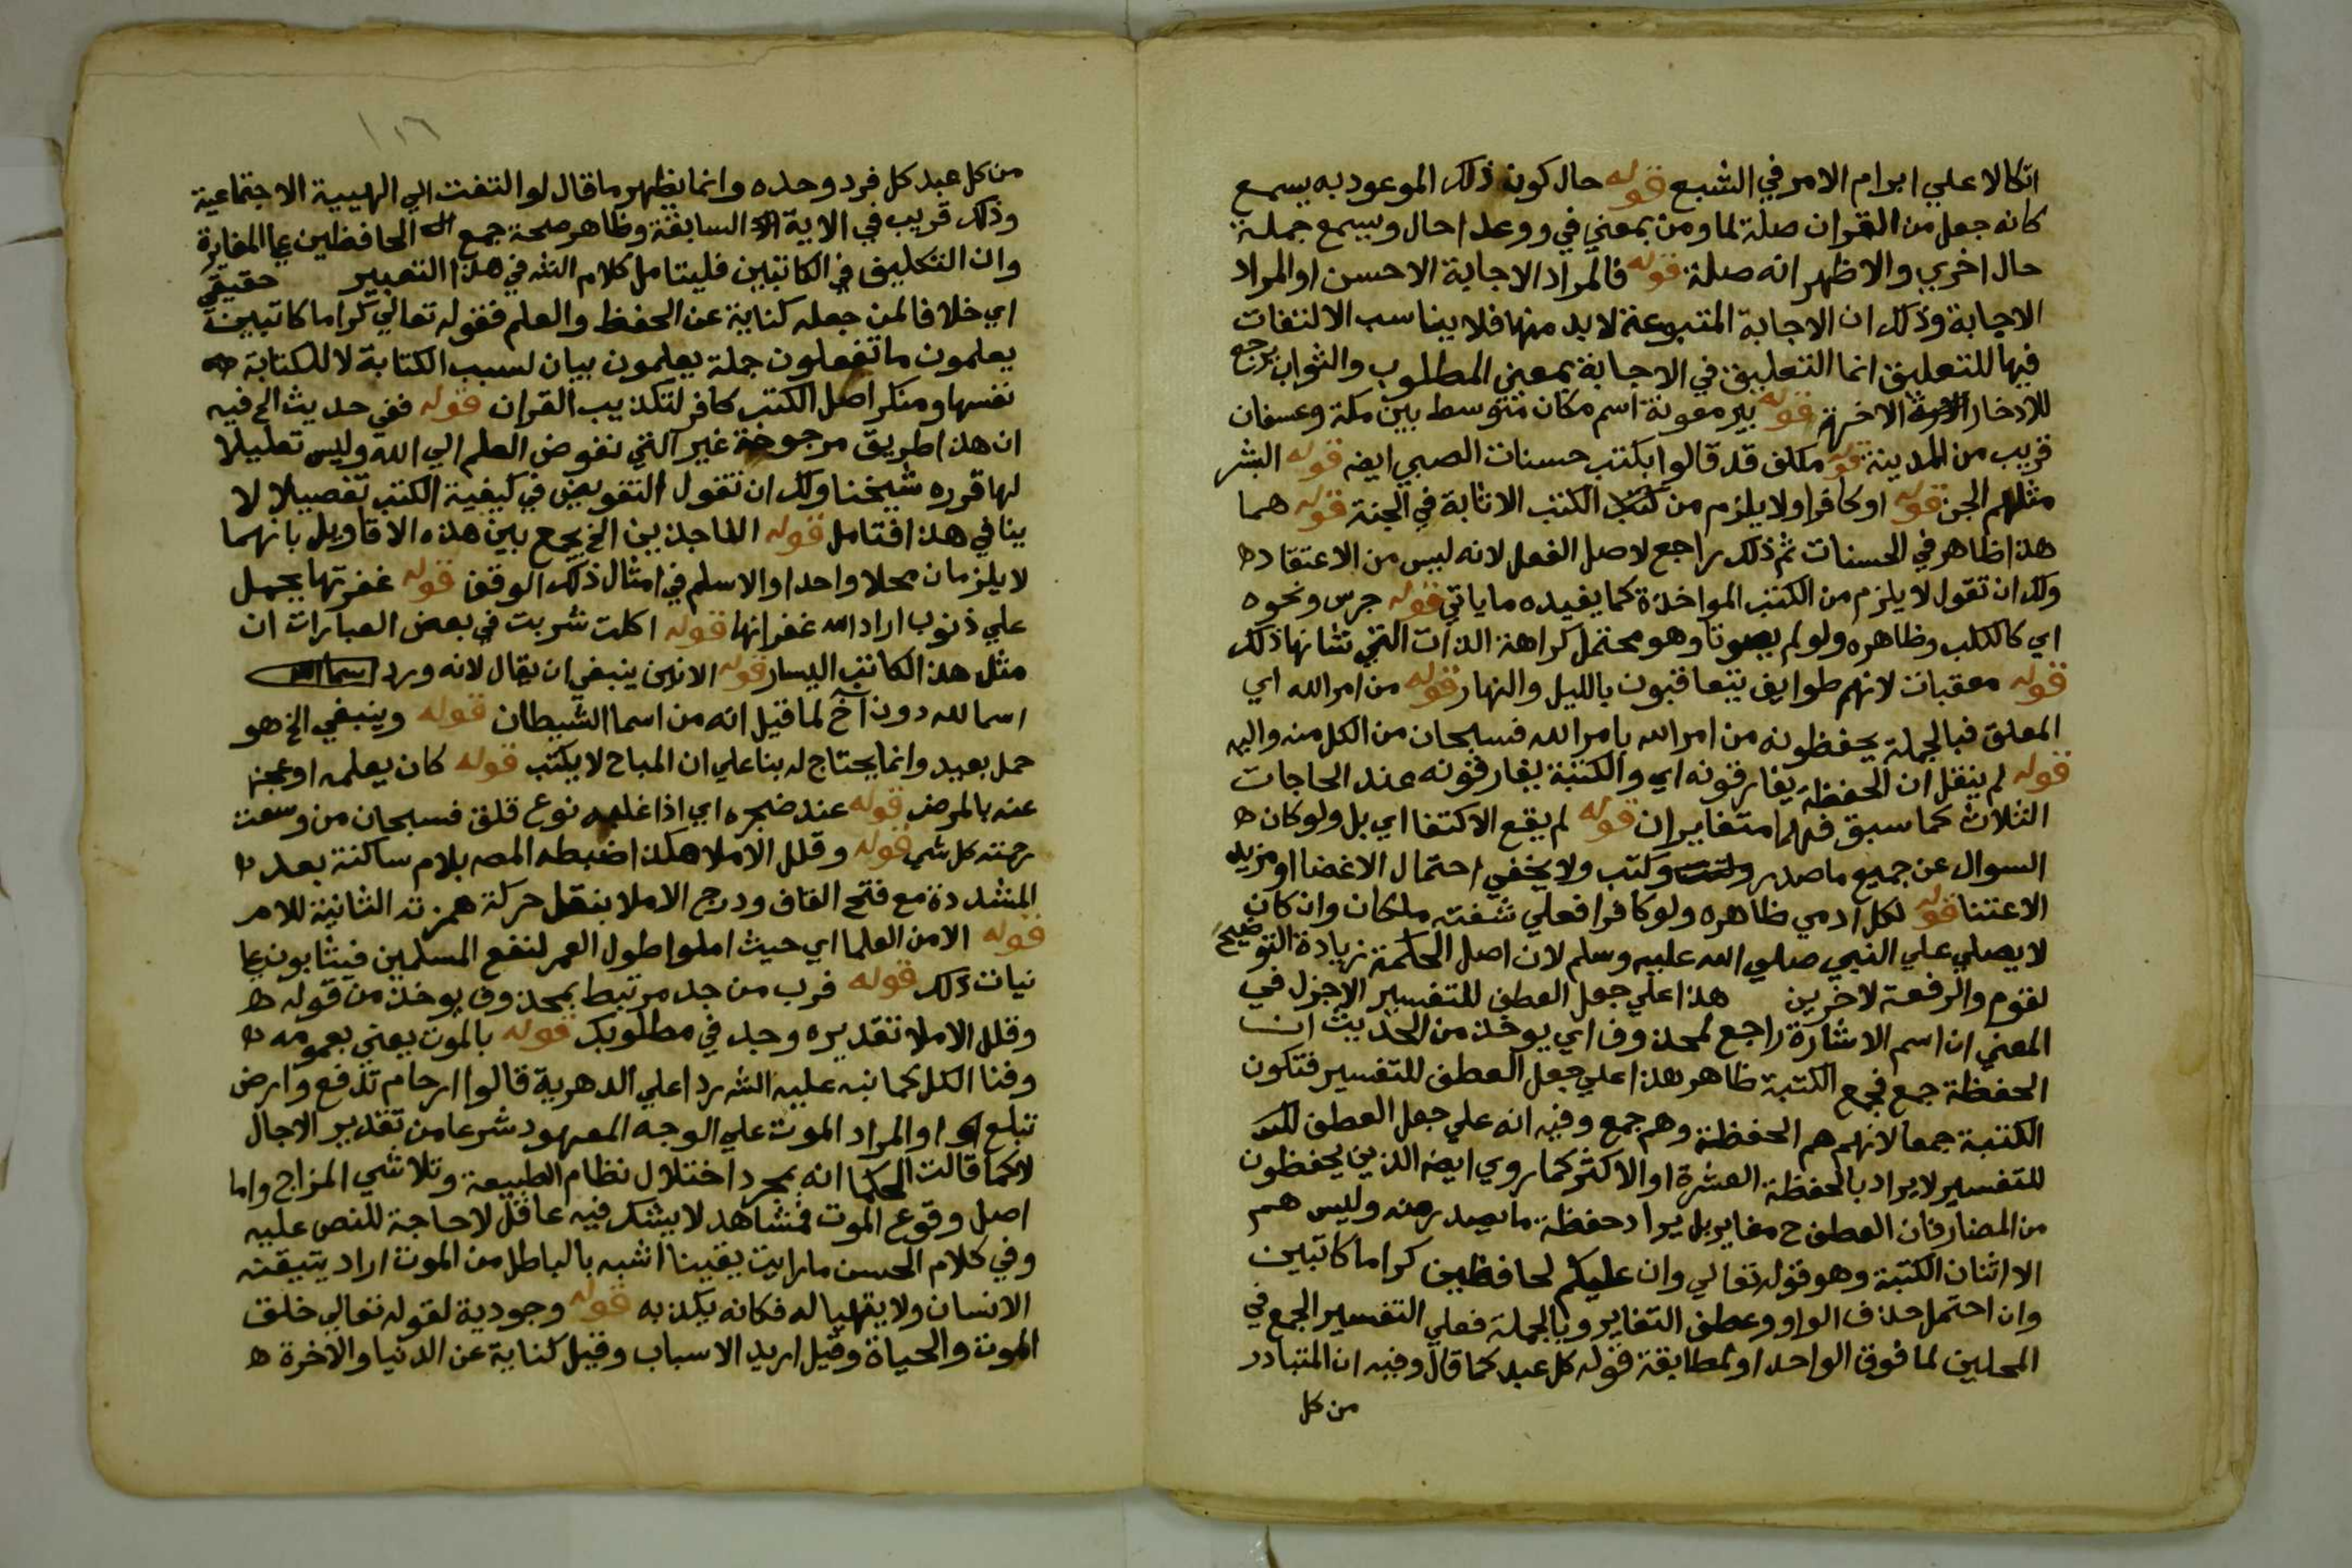 اتكالا علي ابرام الامر في الشبع قوله حال كون ذلك الموعود به يسمع
كانه جعل من القران صلة لما ومن بمعني في ووعد احال ويسمع جملة
حال اخري والاظهر انه صلة قوله فالمراد الاجابة الاحسن او المراد
الاجابة وذلك ان الاجابة المتنوعة لا بد منها فلا يناسب الالتفات
فيها للتعليق انما التعليق في الاجابة بمعني المطلوب والثواب يرجع
للادخار الاخرة قوله بير معونة اسم مكان متوسط بين مكة وعسفان
قريب من المدينة قوله مكلف قد قالوا بكتب حسنات الصبي ايضه قوله البشر
مثلهم الجن قوله او كافرا ولا يلزم من الكتب الاثابة في الجنة قوله هما
هذا ظاهر في الحسنات ثم ذلك راجع لاصل الفعل لانه ليس من الاعتقاد ه
ولك ان تقول لا يلزم من الكتب المواخذة كما يفيده ما ياتي قوله جرس ونحوه
اي كالكلب وظاهره ولو لم يصوتا وهو محتمل كراهة الذات التي شانها ذلك
قوله معقبات لانهم طوايف يتعاقبون بالليل والنهار قوله من امر الله اي
المعلق فبالجملة يحفظونه من امر الله بامر الله فسبحان من الكل منه واليه
قوله لم ينقل ان الحفظة يفارقونه اي والكتبة يفارقونه عند الحاجات
الثلاث كما سبق فهما متغايران قوله لم يقع الاكتفا اي بل ولو كان ه
السوال عن جميع ما صدر وكتب ولا يخفي احتمال الاغضا او مزيد
الاعتنا قوله لكل ادمي ظاهره ولو كافرا فعلي شفته ملكان وان كان
لا يصلي علي النبي صلي الله عليه وسلم لان اصل الحكمة زيادة التوضيح
لقوم والرفعة لاخرين هذا علي جعل العطف للتفسير الاجزل في
المعني ان اسم الاشارة راجع لمحذوف اي يوخذ من الحديث ان
الحفظة جمع فجمع الكتبة ظاهر هذا علي جعل العطف للتفسير فتكون
الكتبة جمعا لانهم هم الحفظة وهم جمع وفيه انه علي جعل العطف
للتفسير لا يراد بالحفظة العشرة او الاكثر كما روي ايضه الذين يحفظون
من المضار فان العطف ح مغاير بل يراد حفظة ما يصدر منه وليس هم
الا اثنان الكتبة وهو قوله تعالي وان عليكم لحافظين كراما كاتبين
وان احتمل حذف الواو وعطف التغاير وبالجملة فعلي التفسير الجمع في
المحلين لما فوق الواحد او لمطابقة قوله كل عبد كما قال وفيه ان المتبادر
من كل
١١٦
من كل عبد كل فرد وحده وانما يظهر ما قال لو التفت الي الهيية الاجتماعية
وذلك قريب في الاية السابقة وظاهر صحة جمع الحافظين علي المغايرة
وان التكليف في الكاتبين فليتامل كلام الشه في هذا التعبير حقيقي
اي خلافا لمن جعله كناية عن الحفظ والعلم فقوله تعالي كراما كاتبين
يعلمون ما تفعلون جملة يعلمون بيان لسبب الكتابة لا للكتابة ه
نفسها ومنكر اصل الكتب كافر لتكذيب القران قوله ففي حديث الخ فيه
ان هذا طريق مرجوحة غير التي نفوض العلم الي الله وليس تعليلا
لها قرره شيخنا ولك ان تقول التفويض في كيفية الكتب تفصيلا لا
ينافي هذا فتامل قوله الناجذين الخ يجمع بين هذه الاقاويل بانهما
لا يلزمان محلا واحدا والاسلم في امثال ذلك الوقف قوله غفرتها يحمل
علي ذنوب اراد الله غفرانها قوله اكلت شربت في بعض العبارات ان
مثل هذا لكاتب اليسار قوله الانين ينبغي ان يقال لانه ورد
اسما لله دون آخ لما قيل انه من اسما الشيطان قوله وينبغي الخ هو
حمل بعيد وانما يحتاج له بنا علي ان المباح لا يكتب قوله كان يعلمه او عجز
عنه بالمرض قوله عند ضجره اي اذا غلبه نوع قلق فسبحان من وسعت
رحمته كل شي قوله وقلل الاملا هكذا ضبطه المصه بلام ساكنة بعد ه
المشددة مع فتح القاف ودرج الاملا بنقل حركة همزته الثانية للامر
قوله الا من العلما اي حيث املوا طول العمر لنفع المسلمين فيثابون علي
نيات ذلك قوله فرب من جد مرتبط بمحذوف يوخذ من قوله ه
وقلل الاملا تقديره وجد في مطلوبك قوله بالموت يعني بعمومه ه
وفنا الكل كما نبه عليه الشه ردا علي الدهرية قالوا ارحام تدفع وارض
تبلع او المراد الموت علي الوجه المعهود شرعا من تقدير الاجال
لا كما قالت الحكما انه بمجرد اختلال نظام الطبيعة وتلاشي المزاج واما
اصل وقوع الموت فمشاهد لا يشك فيه عاقل لا حاجة للنص عليه
وفي كلام الحسن ما رايت يقينا اشبه بالباطل من الموت اراد يتيقنه
الانسان ولا يتهيا له فكانه يكذب به قوله وجودية لقوله تعالي خلق
الموت والحياة وقيل اريد الاسباب وقيل كناية عن الدنيا والاخرة ه